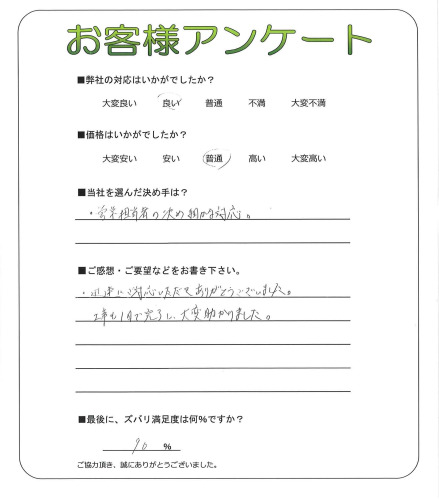 お客様アンケート
■弊社の対応はいかがでしたか？
大変良い 良い 普通 不満 大変不満
■価格はいかがでしたか？
大変安い 安い 普通 高い 大変高い
■当社を選んだ決め手は？
・営業担当者の決め細かな対応。
■ご感想・ご要望などをお書き下さい。
・迅速にご対応いただきありがとうございました。
工事も1日で完了し、大変助かりました。
■最後に、ズバリ満足度は何％ですか？
90 ％
ご協力頂き、誠にありがとうございました。